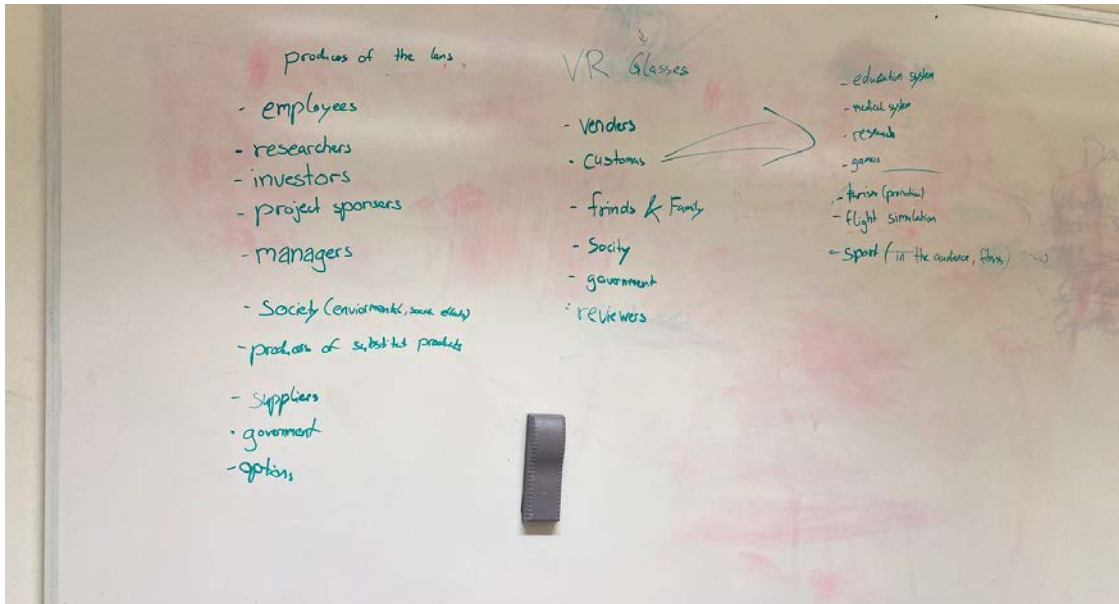 produces of the lens
- employees
- researchers
- investors
- project sponsers
- managers
- Society (enviormental, social effects)
- produces of substitut products
- suppliers
- goverment
- options
VR Glasses
- Venders
- Customas
- frinds & Family
- Socity
- government
- reviewers
- education system
- medical system
- research
- games
- turism (promotion)
- flight simulation
- sport (in the audience, fitness)